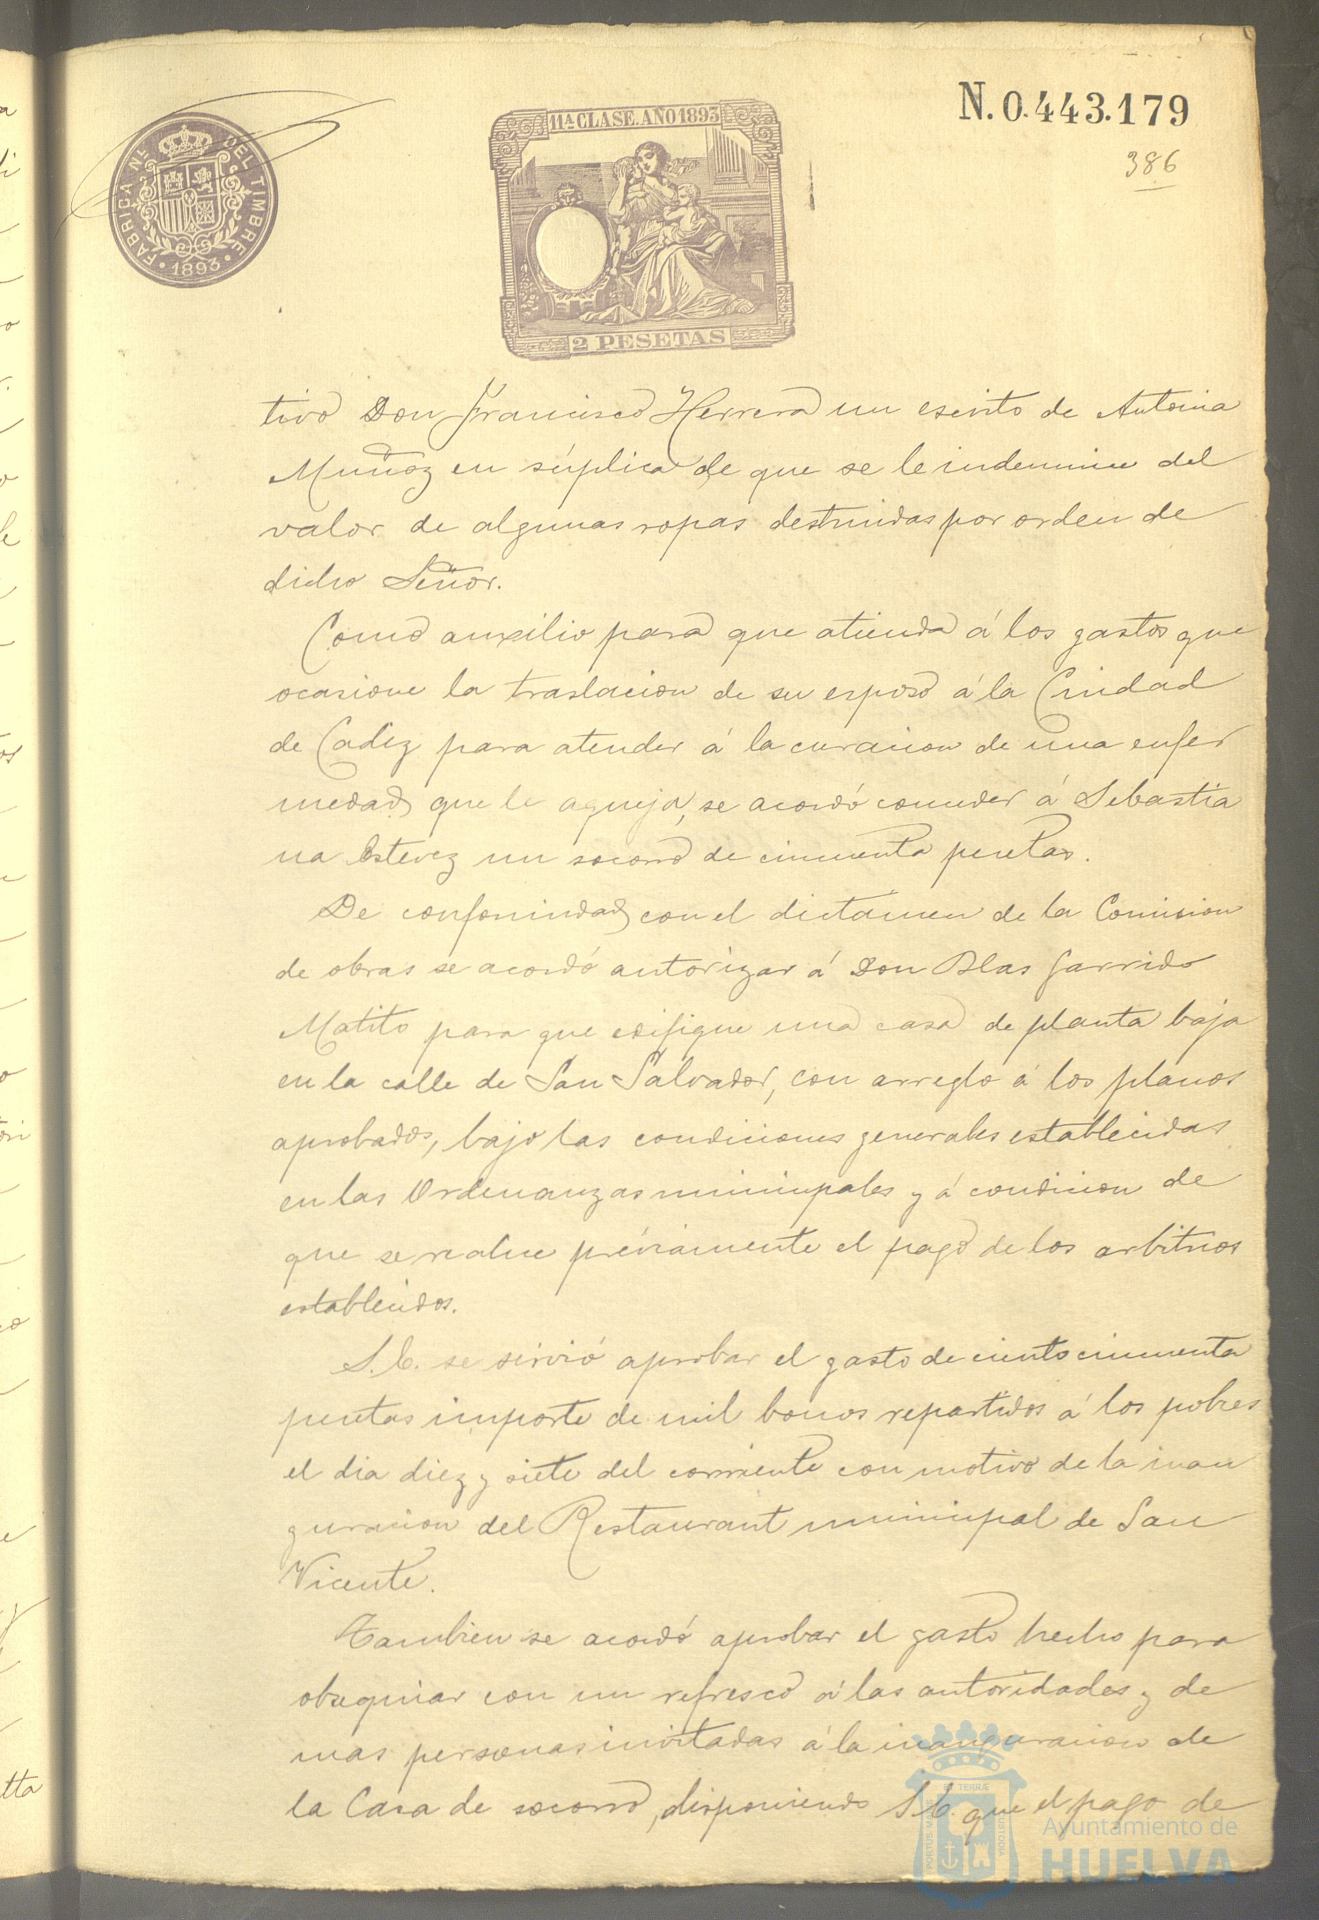 N. 0.443.179
386
11ª CLASE. AÑO 1893
FABRICA NL. DEL TIMBRE
1893
2 PESETAS
tivo Don Francisco Herrera un escrito de Antonia
Muñoz en súplica de que se le indemnice del
valor de algunas ropas destruidas por orden de
dicho Señor.
Como auxilio para que atienda á los gastos que
ocasione la traslacion de su esposo á la Ciudad
de Cadiz para atender á la curacion de una enfer
medad que le aqueja, se acordó conceder á Sebastia
na Estevez un socorro de cincuenta pesetas.
De conformidad con el dictámen de la Comision
de obras se acordó autorizar á Don Blas Garrido
Matito para que edifique una casa de planta baja
en la calle de San Salvador, con arreglo á los planos
aprobados, bajo las condiciones generales establecidas
en las Ordenanzas municipales y á condicion de
que se realice préviamente el pago de los arbitrios
establecidos.
S.E. se sirvió aprobar el gasto de ciento cincuenta
pesetas importe de mil bonos repartidos á los pobres
el dia diez y siete del corriente con motivo de la inau
guracion del Restaurant municipal de San
Vicente.
Tambien se acordó aprobar el gasto hecho para
obsequiar con un refresco á las autoridades y de
mas personas invitadas á la inauguracion de
la Casa de socorro, disponiendo S.E. que el pago de
Ayuntamiento de
HUELVA